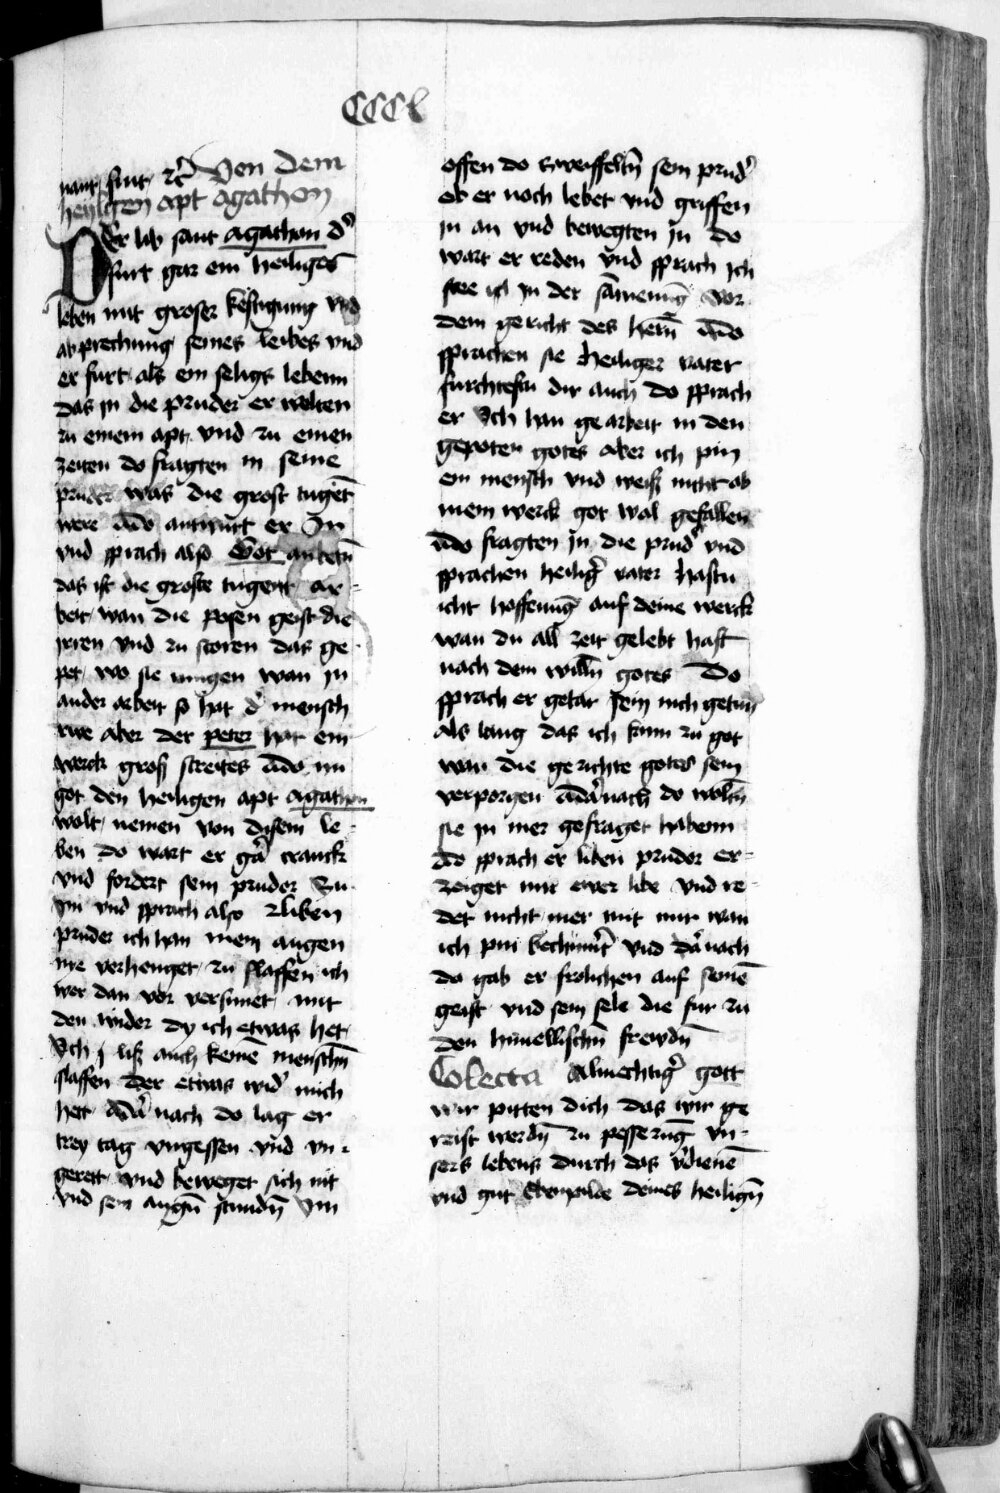 CCCL
nant sint ⁊c̃ Von dem
heyligen apt Agathon
Der lib sant Agathon d'
furt gar ein heiliges
leben mit groser kestigung vnd
ab prechung seines leibes vnd
er furt als ein seligs lebenn
das in die pruder er welten
zu einem apt vnd zu einen
zeiten do fragten in seine
pruder was die grost tuget
were Ado antwurt er In
vnd sprach also Got anbeten̄
das ist die groste tugent ar=
beit wan die posen geist die
irren vnd zu storen das ge
pet wo sie mugen wan in
ander arbeit so hat d' mensch
rwe aber der peter hat ein
werck groß streites Ado nu
got den heiligen apt Agathon
wolt nemen von disem le=
ben do wart er gar kranck
vnd fordert sein pruder zu
im vnd sprach also liben
pruder ich han mein augen
nie verhenget zu slaffen ich
wer dan vor versunet mit
den wider dy ich etwas het
Ich liß auch keinē menschn̄
slaffen der etwas wid' mich
hett Adar nach do lag er
trey tag vngessen vnd vn=
gerett vnd beweget sich nit
vnd sein augn̄ stundn̄ Im
offen do zweiffeltn̄ sein prud'
ob er noch lebet vnd griffen
in an vnd bewegten in do
wart er reden vnd sprach ich
stee ich in der samenūg vor
dem gericht des hern̄ Ado
sprachen sie heiliger vater
furchtestu dir auch do sprach
er Ich han gearbeit in den
gepoten gotes aber ich pin
ein mensch vnd weiß nicht ob
mein werck got wal gefallen
Ado fragten in die prud' vnd
sprachen heilig' vater hastu
icht hoffenūg auf deine werck
wan du all zeit gelebt hast
nach dem willn̄ gotes Do
sprach er getar sein nich getun
als lang das ich kum zu got
wan die gerichte gotes sein
verporgen Adar nach do woltn̄
sie in mer gefraget habenn
Ado sprach er liben pruder er=
zeiget mir ewer libe vnd re=
det nicht mer mit mir wan
ich pin bechum̄t vnd dar nach
do gab er frolichen auf seinē
geist vnd sein sele die fur zu
den himellischn̄ frewdn̄
Colecta Almechtig' gott
wir pitten dich das wir ge
reist werdn̄ zu pesserūg vn=
sers lebens durch das
vnd gut Ebenpilde deines heilign̄